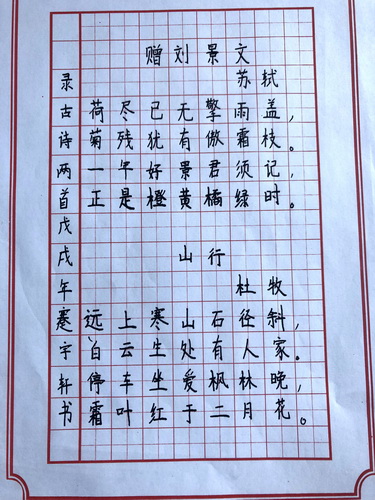 赠刘景文
苏轼
荷尽已无擎雨盖，
菊残犹有傲霜枝。
一年好景君须记，
正是橙黄橘绿时。
山行
杜牧
远上寒山石径斜，
白云生处有人家。
停车坐爱枫林晚，
霜叶红于二月花。
录古诗两首戊戌年蹇宇轩书